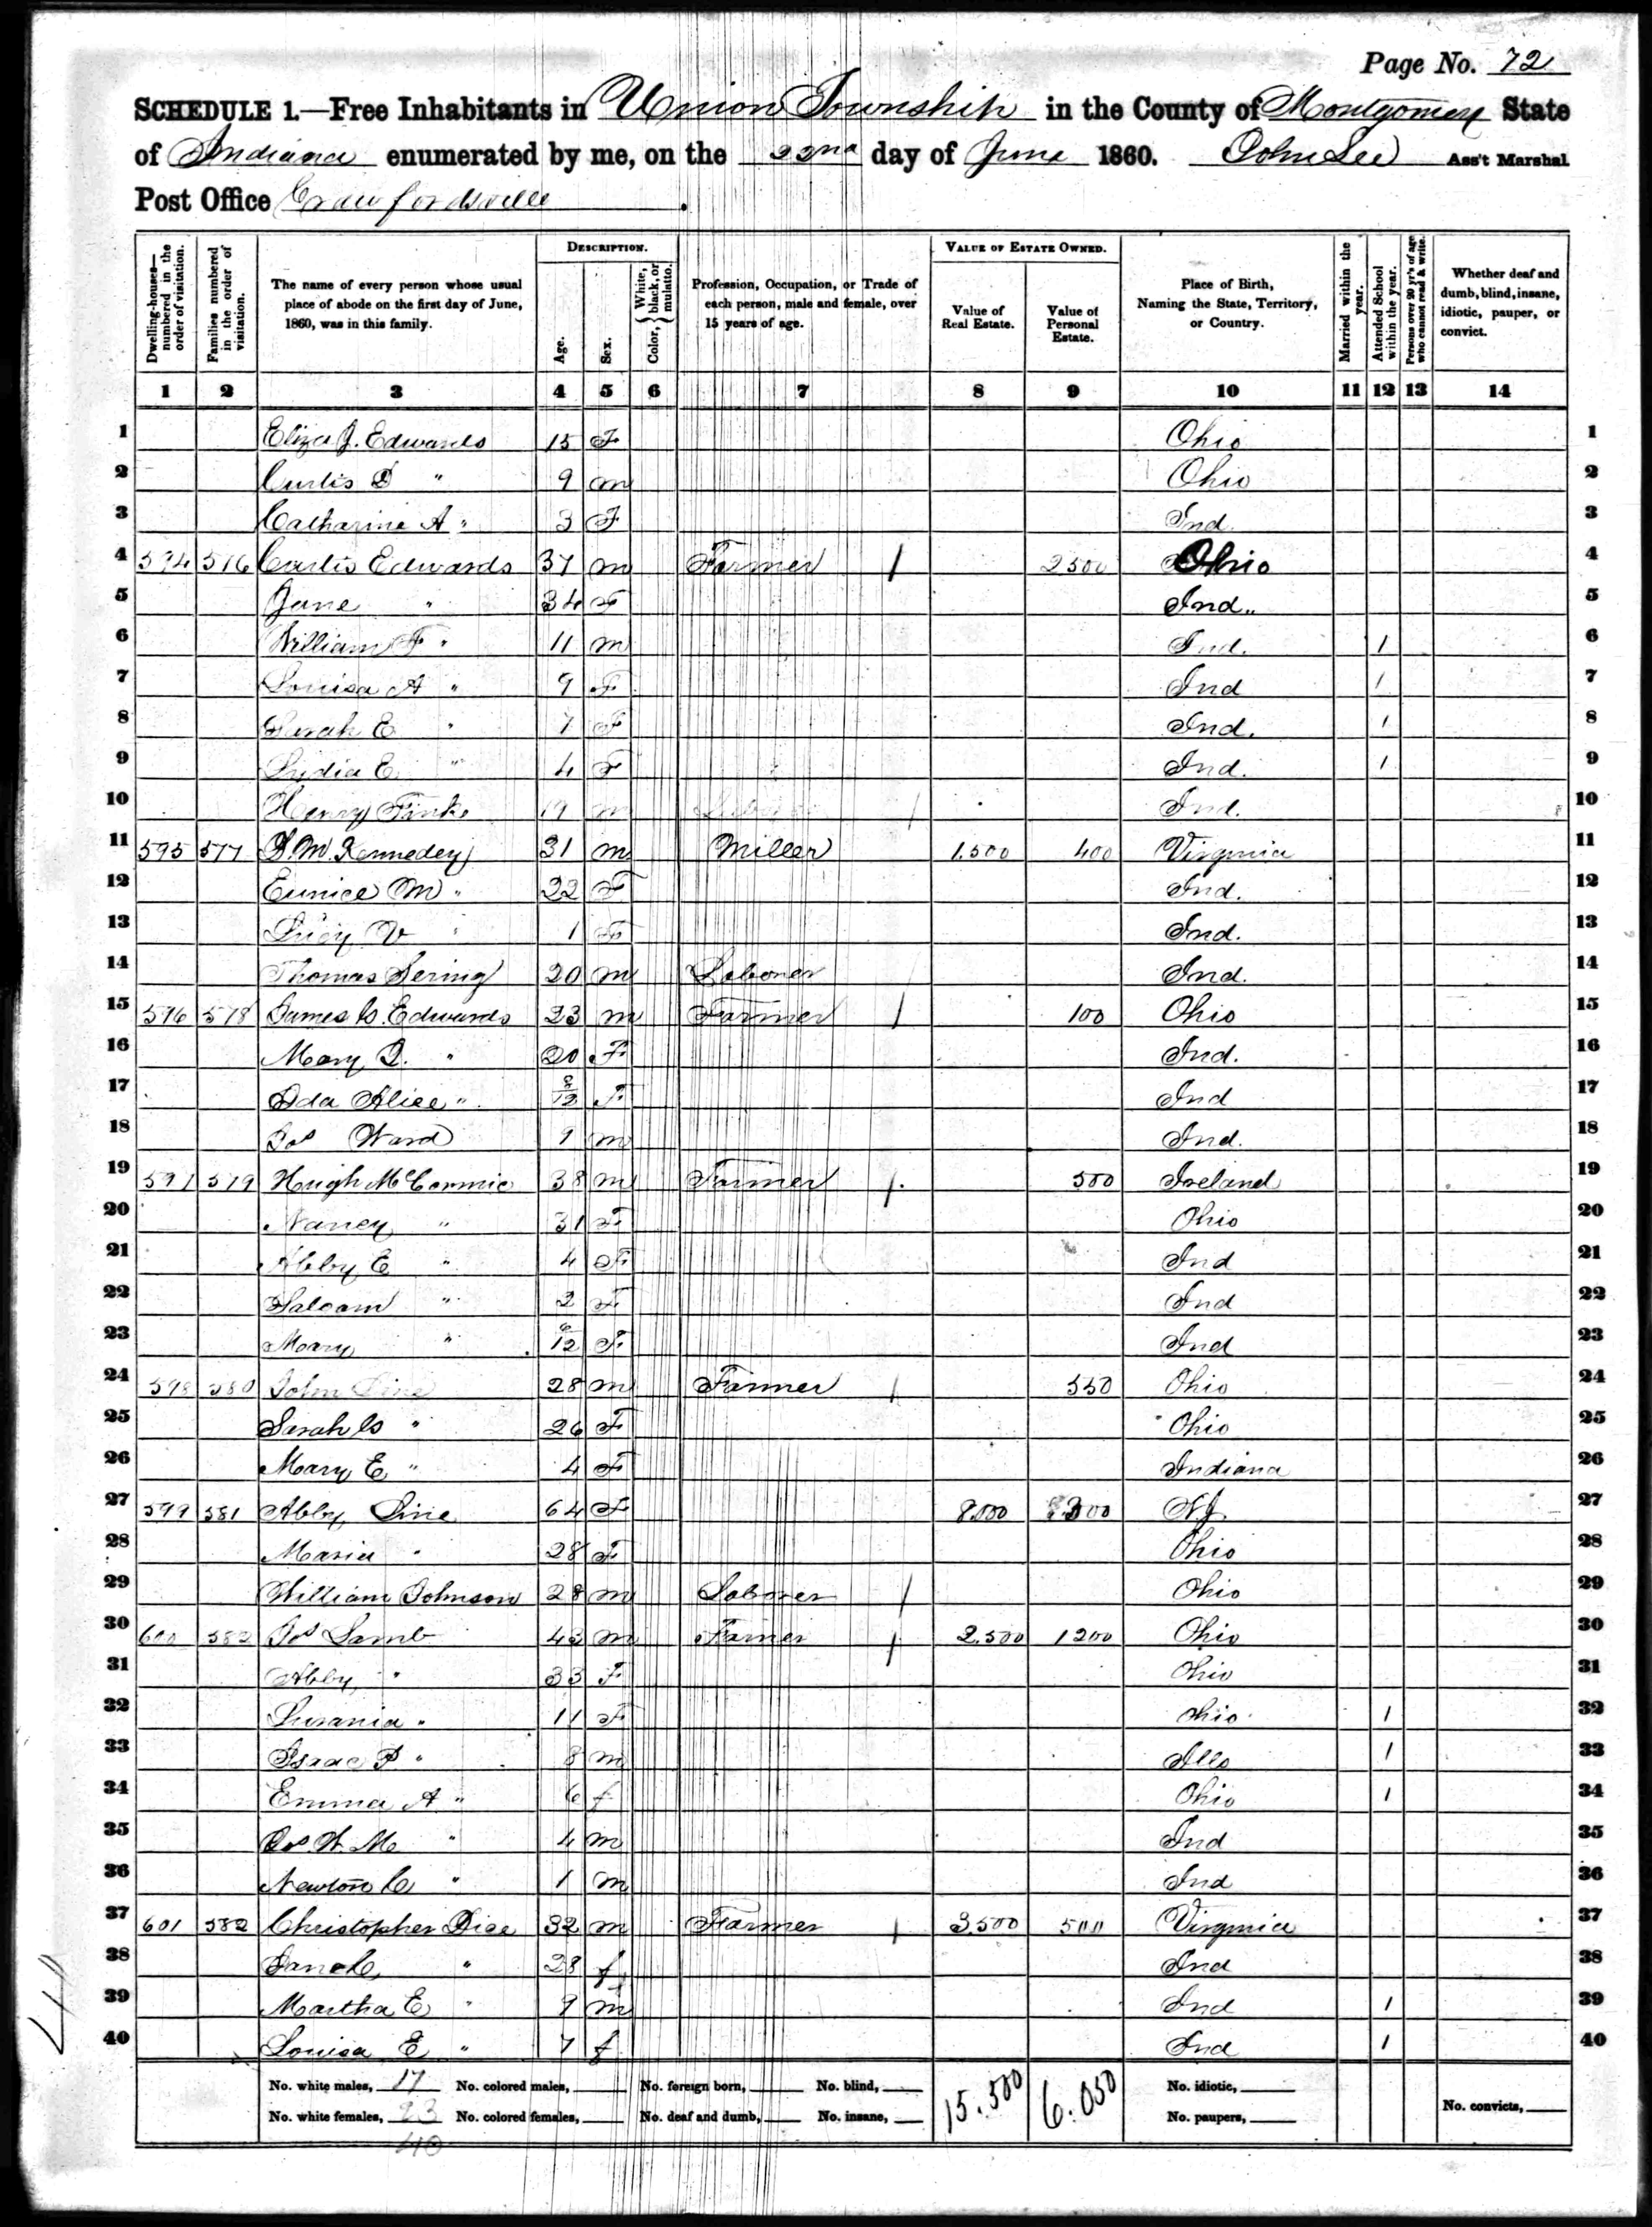 Page No. 72
SCHEDULE 1.—Free Inhabitants in Union Township in the County of Montgomery State
of Indiana enumerated by me, on the 22nd day of June 1860. John Lee Ass't Marshal
Post Office Crawfordsville.
Dwelling-houses—numbered in the order of visitation. Families numbered in the order of visitation. The name of every person whose usual place of abode on the first day of June, 1860, was in this family. DESCRIPTION. Age. Sex. Color, { White, black, or mulatto. Profession, Occupation, or Trade of each person, male and female, over 15 years of age. VALUE OF ESTATE OWNED. Value of Real Estate. Value of Personal Estate. Place of Birth, Naming the State, Territory, or Country. Married within the year. Attended School within the year. Persons over 20 yr's of age who cannot read & write. Whether deaf and dumb, blind, insane, idiotic, pauper, or convict.
1 2 3 4 5 6 7 8 9 10 11 12 13 14
1 Eliza J. Edwards 15 F Ohio 1
2 Curtis D " 9 m Ohio 2
3 Catharine A " 3 F Ind. 3
4 594 576 Curtis Edwards 37 m Farmer / 2500 Ohio 4
5 Jane " 34 F Ind.. 5
6 William F " 11 m Ind. 1 6
7 Louisa A " 9 F Ind 1 7
8 Sarah E " 7 F Ind. 1 8
9 Lydia E " 4 F Ind. 1 9
10 Henry 19 m Laborer / Ind. 10
11 595 577 Kennedey 31 m Miller 1.500 400 Virginia 11
12 Eunice M " 22 F Ind. 12
13 Lucy V " 1 F Ind. 13
14 Thomas Sering 20 m Laborer Ind. 14
15 596 578 James Edwards 23 m Farmer / 100 Ohio 15
16 Mary " 20 F Ind. 16
17 Ida Alice " /12 F Ind 17
18 Jos Ward 9 m Ind. 18
19 597 579 Hugh McCormic 38 m Farmer / 500 Ireland 19
20 Nancy " 31 F Ohio 20
21 Abby E " 4 F Ind 21
22 " 2 F Ind 22
23 Mary " /12 F Ind 23
24 598 580 John Line 28 m Farmer / 550 Ohio 24
25 Sarah " 26 F Ohio 25
26 Mary E " 4 F Indiana 26
27 599 581 Abby Line 64 F 8.000 300 NJ. 27
28 Maria " 28 F Ohio 28
29 William Johnson 28 m Laborer / Ohio 29
30 600 582 Jos Lamb 43 m Farmer / 2.500 1200 Ohio 30
31 Abby " 33 F Ohio 31
32 " 11 F Ohio 1 32
33 Isaac P " 8 m Ills 1 33
34 Emma A " 6 f Ohio 1 34
35 Jos W. M " 4 m Ind 35
36 Newton C " 1 m Ind 36
37 601 582 Christopher Dice 32 m Farmer / 3.500 500 Virginia 37
38 Jane C " 28 f Ind 38
39 Martha E " 9 m Ind 1 39
40 Louisa E " 7 f Ind 1 40
No. white males, 17 No. colored males, No. foreign born, No. blind, 15.500 6.050 No. idiotic,
No. white females, 23 No. colored females, No. deaf and dumb, No. insane, No. paupers, No. convicts,
40